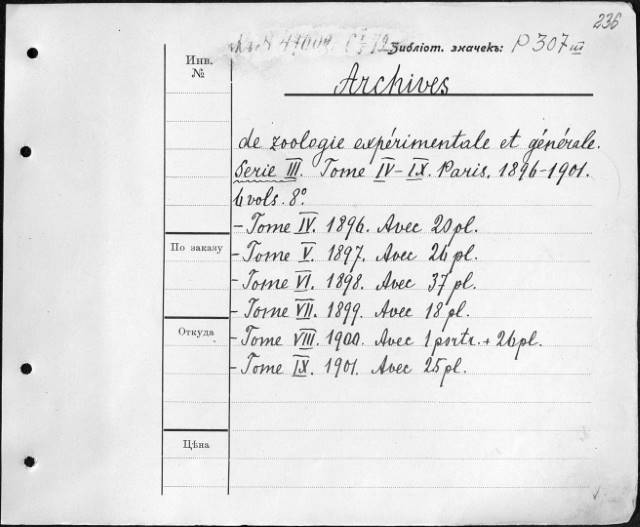 236
Библіот. значекъ: P 307 III
Инв.
№
Archives
de zoologie expérimentale et générale.
Serie III. Tome IV–IX. Paris, 1896–1901.
6 vols. 8°.
– Tome IV. 1896. Avec 20 pl.
– Tome V. 1897. Avec 26 pl.
По заказу
– Tome VI. 1898. Avec 37 pl.
– Tome VII. 1899. Avec 18 pl.
Откуда
– Tome VIII. 1900. Avec 1 portr. + 26 pl.
– Tome IX. 1901. Avec 25 pl.
Цѣна